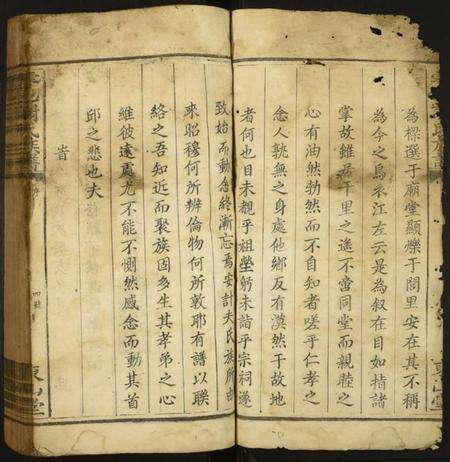 為樑選于廟堂顯爍于閭里安在其不稱
為今之烏衣江左云是為叙在目如指諸
掌故雖若千里之遙不啻同堂而親睦之
心有油然勃然而不自知者嗟乎仁孝之
念人孰無之身處他鄉反有漠然于故地
者何也目未親乎祖塋躬未詣乎宗祠遂
致始而動念終漸忘焉安計夫氏族所由
來昭穆何所辨倫物何所敦耶有譜以聯
絡之吾知近而聚族固多生其孝弟之心
維彼遠裔尤不能不惻然感念而動其首
邱之悲也夫
旹
東山堂
東山堂